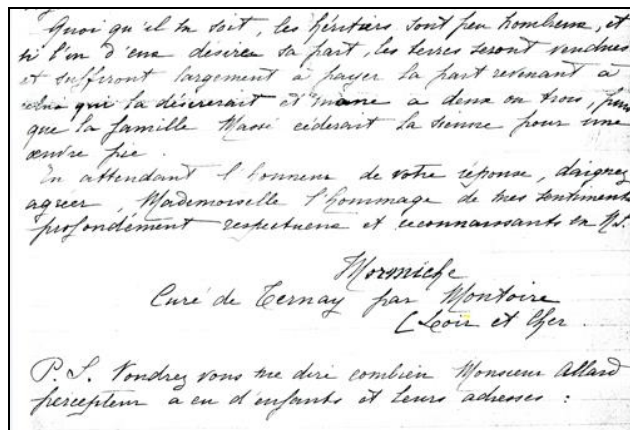 Quoi qu'il en soit, les héritiers sont peu nombreux, et
si l'un d'eux désire sa part, les terres seront vendues
et suffiront largement à payer la part revenant à
celui qui la désirerait et même a deux ou trois, puis
que la famille Massé céderait la sienne pour une
œuvre pie.
En attendant l'honneur de votre réponse, daignez
agréer, Mademoiselle l'hommage de mes sentiments
profondément respectueux et reconnaissants en N.S.
Mormiche
Curé de Ternay par Montoire
(Loir et Cher
P.S. Voudrez vous me dire combien Monsieur Allard
percepteur a eu d'enfants et leurs adresses :